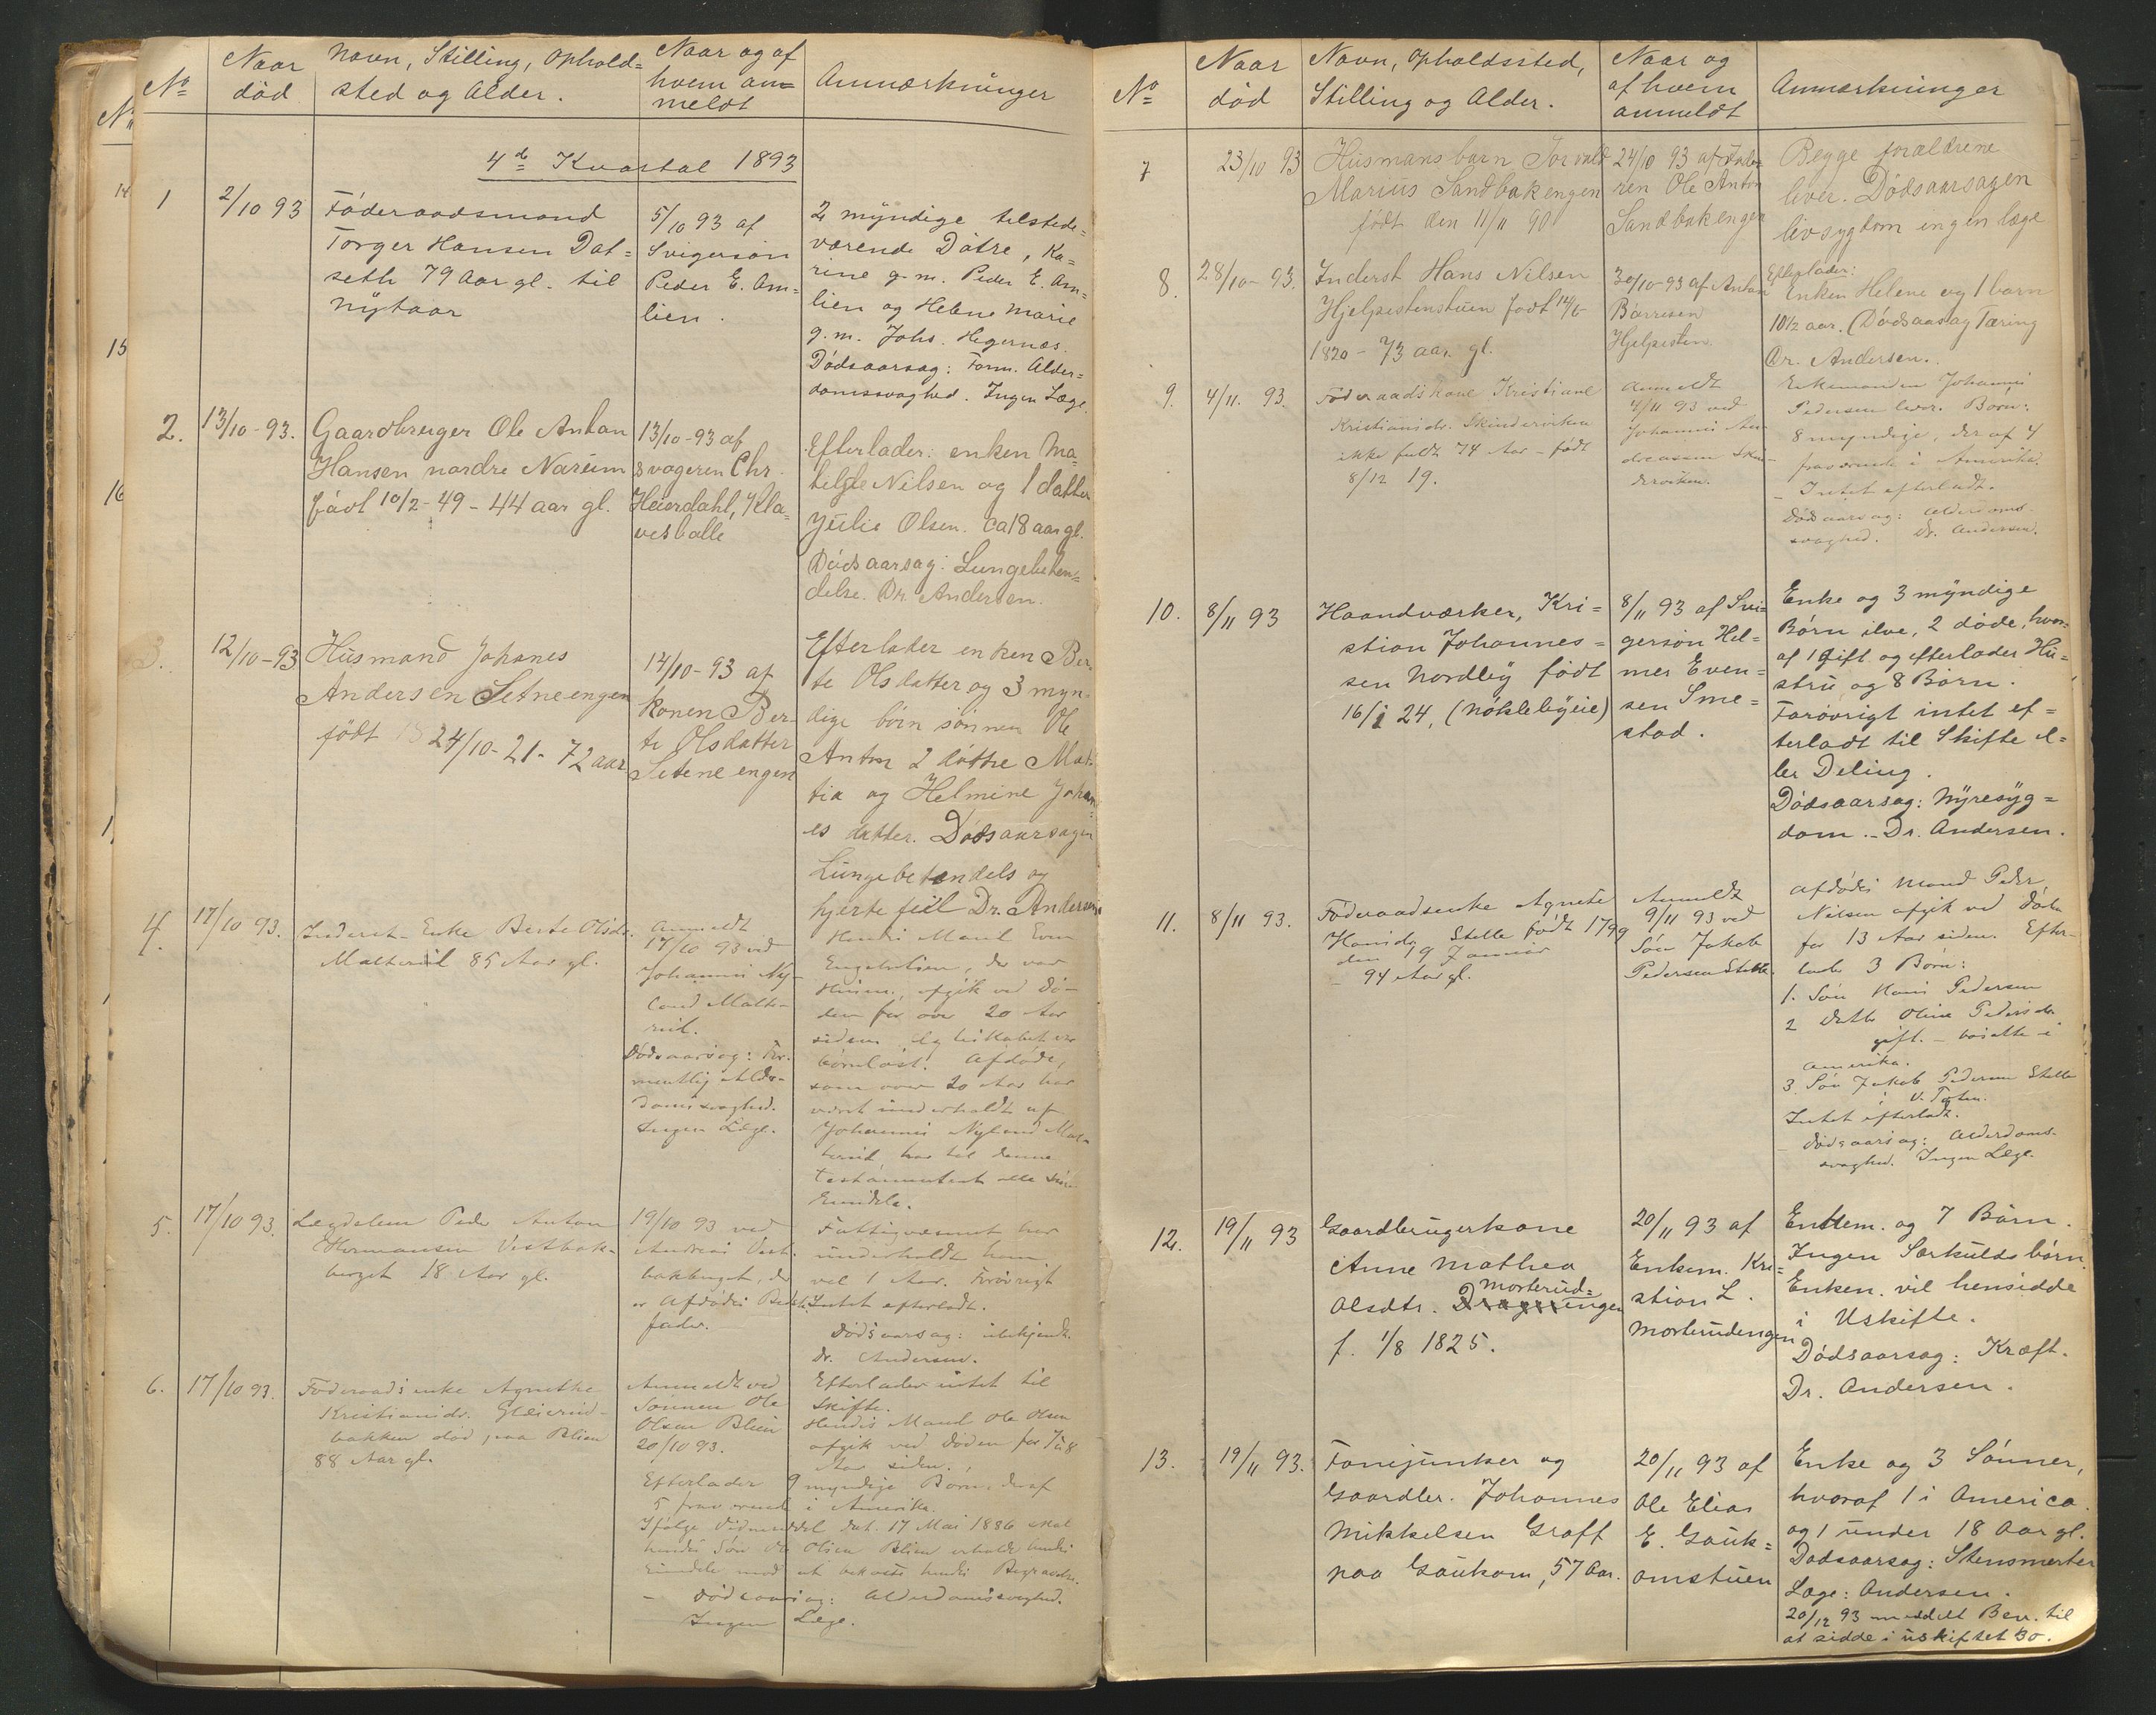 No
Naar
död
Navn, Stilling, Ophold=
sted og Alder.
Naar og af
hvem an=
meldt
Anmærkninger
4de Kvartal 1893
1
2/10 93
Föderaadsmand
Torger Hansen Dal=
seth 79 Aar gl. til
nytaar
5/10 93 af
Svigersön
Peder E. Am=
lien.
2 myndige tilstede=
værende Dötre, Ka=
rine g.m. Peder E. Am=
lien og Helene Marie
g.m. Johs. Hegernæs.
Dödsaarsag: Form. Alder=
domssvaghed. Ingen Læge.
2.
13/10-93.
Gaardbruger Ole Anton
Hansen nordre Narum
født 10/2-49 - 44 aar gl.
13/10-93 af
svogeren Chr.
Heierdahl, Kla=
vesballe
Efterlader: enken Ma=
thilde Nilsen og 1 datter
Julie Olsen. ca 18 aar gl.
Dødsaarsag: Lungebeten=
delse. Dr. Andersen.
3.
12/10-93
Husmand Johanes
Andersen Setneengen
født 24/10-21 - 72 aar
14/10-93 af
konen Ber-
te Olsdatter
Seteneengen
Efterlater enken Ber-
te Olsdatter og 3 myn-
dige börn sönnen Ole
Anton 2 döttre Mat-
tia og Helmine Johan
es datter. Dødsaarsagen
Lungebetendels og
hjerte feil Dr. Andersen
4.
17/10 93.
Inderst-Enke Berte Olsdr.
Malterud 85 Aar gl.
Anmeldt
17/10 93 ved
Johannes Ny-
land Malte-
rud.
Dødsaarsag: For-
mentlig Alder-
domssvaghed.
Ingen Læge.
Hendes Mand Even
Engebretsen, der var
Husm., afgik ved Dö-
den for over 20 Aar
siden. Ægteskabet var
barnløst. Afdøde,
som over 20 Aar har
været underholdt af
Johannes Nyland Mal-
terud, har til denne
testamenteret alle sine
Eiendele.
5.
17/10 93.
Lægdslem Peder Anton
Hermansen Vestbak-
berget 18 Aar gl.
19/10 93 ved
Andreas Vest-
bakberget, der
er Afdødes Bedste-
fader.
Fattigvæsenet har
underholdt ham
vel 1 Aar. Forøvrigt
Intet efterladt.
Dødsaarsag: ubekjendt.
Dr. Andersen.
6.
17/10 93.
Föderaadsenke Agnethe
Kristiansdr. Gleierud-
bakken død paa Blien
88 Aar gl.
Anmeldt ved
Sönnen Ole
Olsen Blien
20/10 93.
Efterlader intet til
Skifte.
Hendes Mand Ole Olsen
afgik ved Døden for 7 à 8
Aar siden.
Efterlader 9 myndige Børn, deraf
5 fraværende i Amerika.
Ifølge Vidnemddel dat. 17 Mai 1886 skal
hendes Søn Ole Olsen Blien erholde hendes
Eiendele mod at bekoste hendes Begravelse.
- Dødsaarsag: Alderdomssvaghed.
Ingen Læge.
No
Naar
död
Navn, Opholdssted,
Stilling og Alder.
Naar og
af hvem
anmeldt
Anmærkninger
7
23/10 93
Husmansbarn Torvald
Marius Sandbakengen
født den 11/11 90
24/10 93 af Fade-
ren Ole Anton
Sandbakengen
Begge forældrene
liver. Dødsaarsagen
livsygdom ingen læge
8.
28/10-93.
Inderst Hans Nilsen
Hjelpestenstuen født 14/6
1820 - 73 aar gl.
30/10-93 af Anton
Børresen
Hjelpesten.
Efterlader:
Enken Helene og 1 barn
10½ aar. (Dødsaarsag Tæring
Dr. Andersen.
9.
4/11. 93.
Føderaadskone Kristiane
Kristiansdr. Skinderviken
ikke fuldt 74 Aar - født
8/12 19.
Anmeldt
4/11 93 ved
Johannes An-
dreassen Skin-
derviken.
Enkemanden Johannes
Pedersen lever. Børn:
8 myndige, der af 4
fraværende i Amerika.
- Intet efterladt.
Dødsaarsag: Alderdoms-
svaghed. Dr. Andersen.
10.
8/11 93
Haandværker, Kri=
stian Johannes=
sen Nordby født
16/1 24, (Nøklebyeie)
8/11 93 af Svi=
gersön Hel=
mer Even=
sen Sme=
stad.
Enke og 3 myndige
Börn ilve, 2 døde, hvor=
af 1 gift og efterlader Hu=
stru og 8 Börn.
Forøvrigt intet ef=
terladt til Skifte el=
ler Deling.
Dödsaarsag: Nyresyg=
dom. - Dr. Andersen.
11.
8/11 93.
Föderaadsenke Agnete
Hansdr. Stelle født 1799
den 19 Januar
- 94 Aar gl.
Anmeldt
9/11 93 ved
Søn Jakob
Pedersen Stelle.
Afdødes Mand Peder
Nilsen afgik ved Døden
for 13 Aar siden. Efter-
lader 3 Børn:
1. Søn Hans Pedersen
2 Datter Oline Pedersdr.
gift. - bosatte i
Amerika.
3. Søn Jakob Pedersen Stelle
i V. Toten.
Intet efterladt.
- Dødsaarsag: Alderdoms-
svaghed. Ingen Læge.
12.
19/11 93
Gaardbrugerkone
Anne Mathea
Morterud=
Olsdtr. Dragerengen
f. 1/8 1825.
20/11 93 af
Enkem. Kri=
stian L.
Morterudengen
Enkem. og 7 Børn.
Ingen Særkuldsbörn.
Enkem. vil hensidde
i Uskifte.
Dødsaarsag: Kræft.
Dr. Andersen.
13.
19/11 93.
Fanejunker og
Gaardbr. Johannes
Mikkelsen Graff
paa Gaukom, 57 Aar.
20/11 93 af
Ole Elias
E. Gauk=
omstuen
Enke og 3 Sönner,
hvoraf 1 i America.
og 1 under 18 Aar gl.
Dødsaarsag: Stensmerter
Læge: Andersen.
20/12 93 meddelt Bev. til
at sidde i uskiftet Bo.